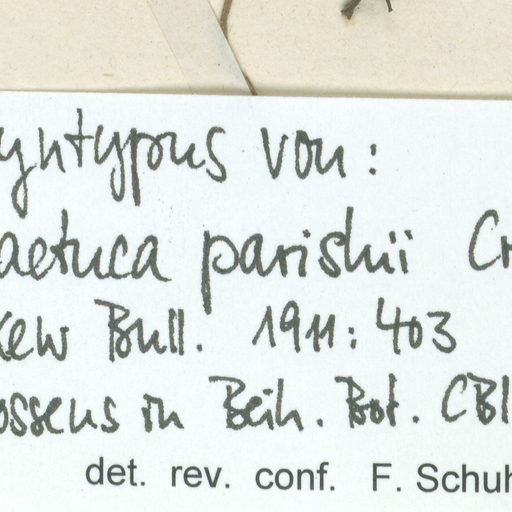 yntypus von:
actuca parishii Cr
Kew Bull. 1911: 403
ossens in Beih. Bot. CBl
det. rev. conf. F. Schuh